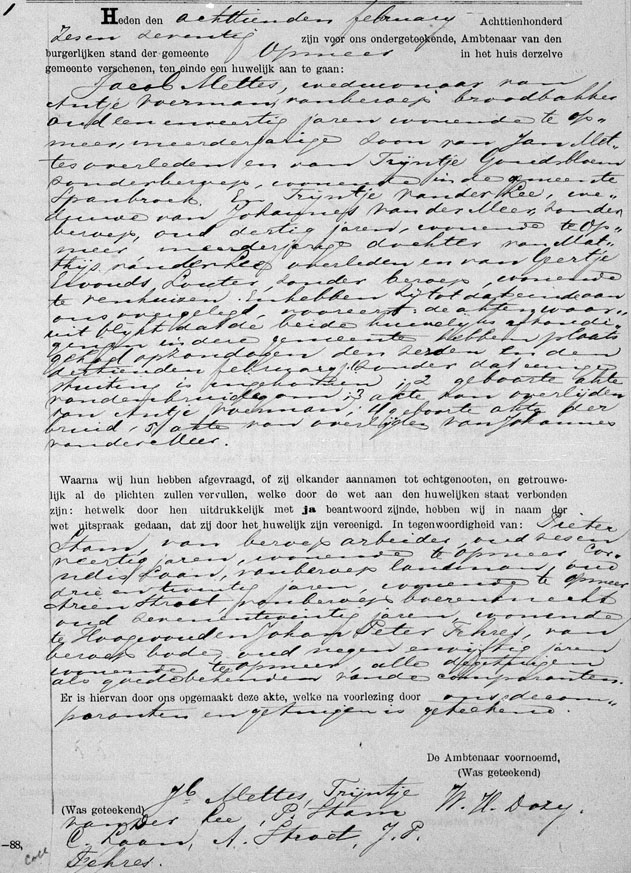 1
Heden den achttienden february Achttienhonderd
Zesen zeventig zijn voor ons ondergeteekende, Ambtenaar van den
burgerlijken stand der gemeente Opmeer in het huis derzelve
gemeente verschenen, ten einde een huwelijk aan te gaan:
Jacob Mettes, weduwnaar van
Antje Voerman, van beroep broodbakker
oud een en veertig jaren wonende te Op=
meer, meerderjarige zoon van Jan Met=
tes overleden en van Trijntje Goudsbloem
zonder beroep, wonende in de gemeente
Spanbroek. En Trijntje van der Lee, we=
duwe van Johannes van der Meer, zonder
beroep, oud dertig jaren, wonende te Op=
meer, meerderjarige dochter van Mat=
thijs van der Lee overleden en van Geertje
Louter, zonder beroep, wonende
te venhuizen. En hebben zij tot dat einde aan
ons overgelegd, vooreerst de akten waar=
uit blijkt dat de beide huwelijks afkondi=
gingen in deze gemeente hebben plaats
gehad op zondagen den zesden en den
dertienden february zonder dat een ge
stuit is 2 geboorte akte
van den bruidegom, 3 akte van overlijden
van Antje Voerman, 4 geboorte akte der
bruid, 5 akte van overlijden van Johannes
van der Meer.
Waarna wij hun hebben afgevraagd, of zij elkander aannamen tot echtgenooten, en getrouwe-
lijk al de plichten zullen vervullen, welke door de wet aan den huwelijken staat verbonden
zijn: hetwelk door hen uitdrukkelijk met ja beantwoord zijnde, hebben wij in naam der
wet uitspraak gedaan, dat zij door het huwelijk zijn vereenigd. In tegenwoordigheid van: Pieter
Stam, van beroep arbeider, oud zes en
veertig jaren, wonende te Opmeer Cor=
nelis Laan, van beroep landman, oud
drie en twintig jaren wonende te Opmeer
Arien Stroet, van beroep boerenknecht
oud zeven en twintig jaren, wonende
te Hoogwoud en Johan Peter Fehres, van
beroep bode, oud negen en vijftig jaren
wonende te Opmeer, alle getuigen
als goede bekenden van de comparanten.
Er is hiervan door ons opgemaakt deze akte, welke na voorlezing door ons de com=
paranten en getuigen is geteekend.
De Ambtenaar voornoemd,
(Was geteekend)
Jb Mettes, Trijntje
(Was geteekend) van der Lee, P. Stam W. H. Dozy.
C. Laan, A. Stroet, J. P.
Fehres.
—88,
Coll